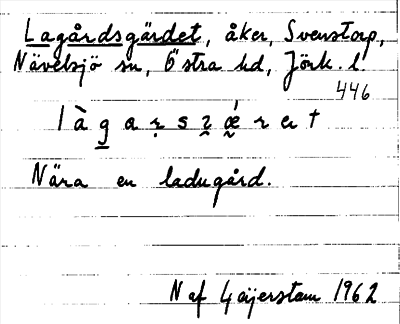 Lagårdsgärdet, åker, Svenstorp,
Nävelsjö sn, Östra hd, Jönk. l.
446
Nära en ladugård.
N af 1962